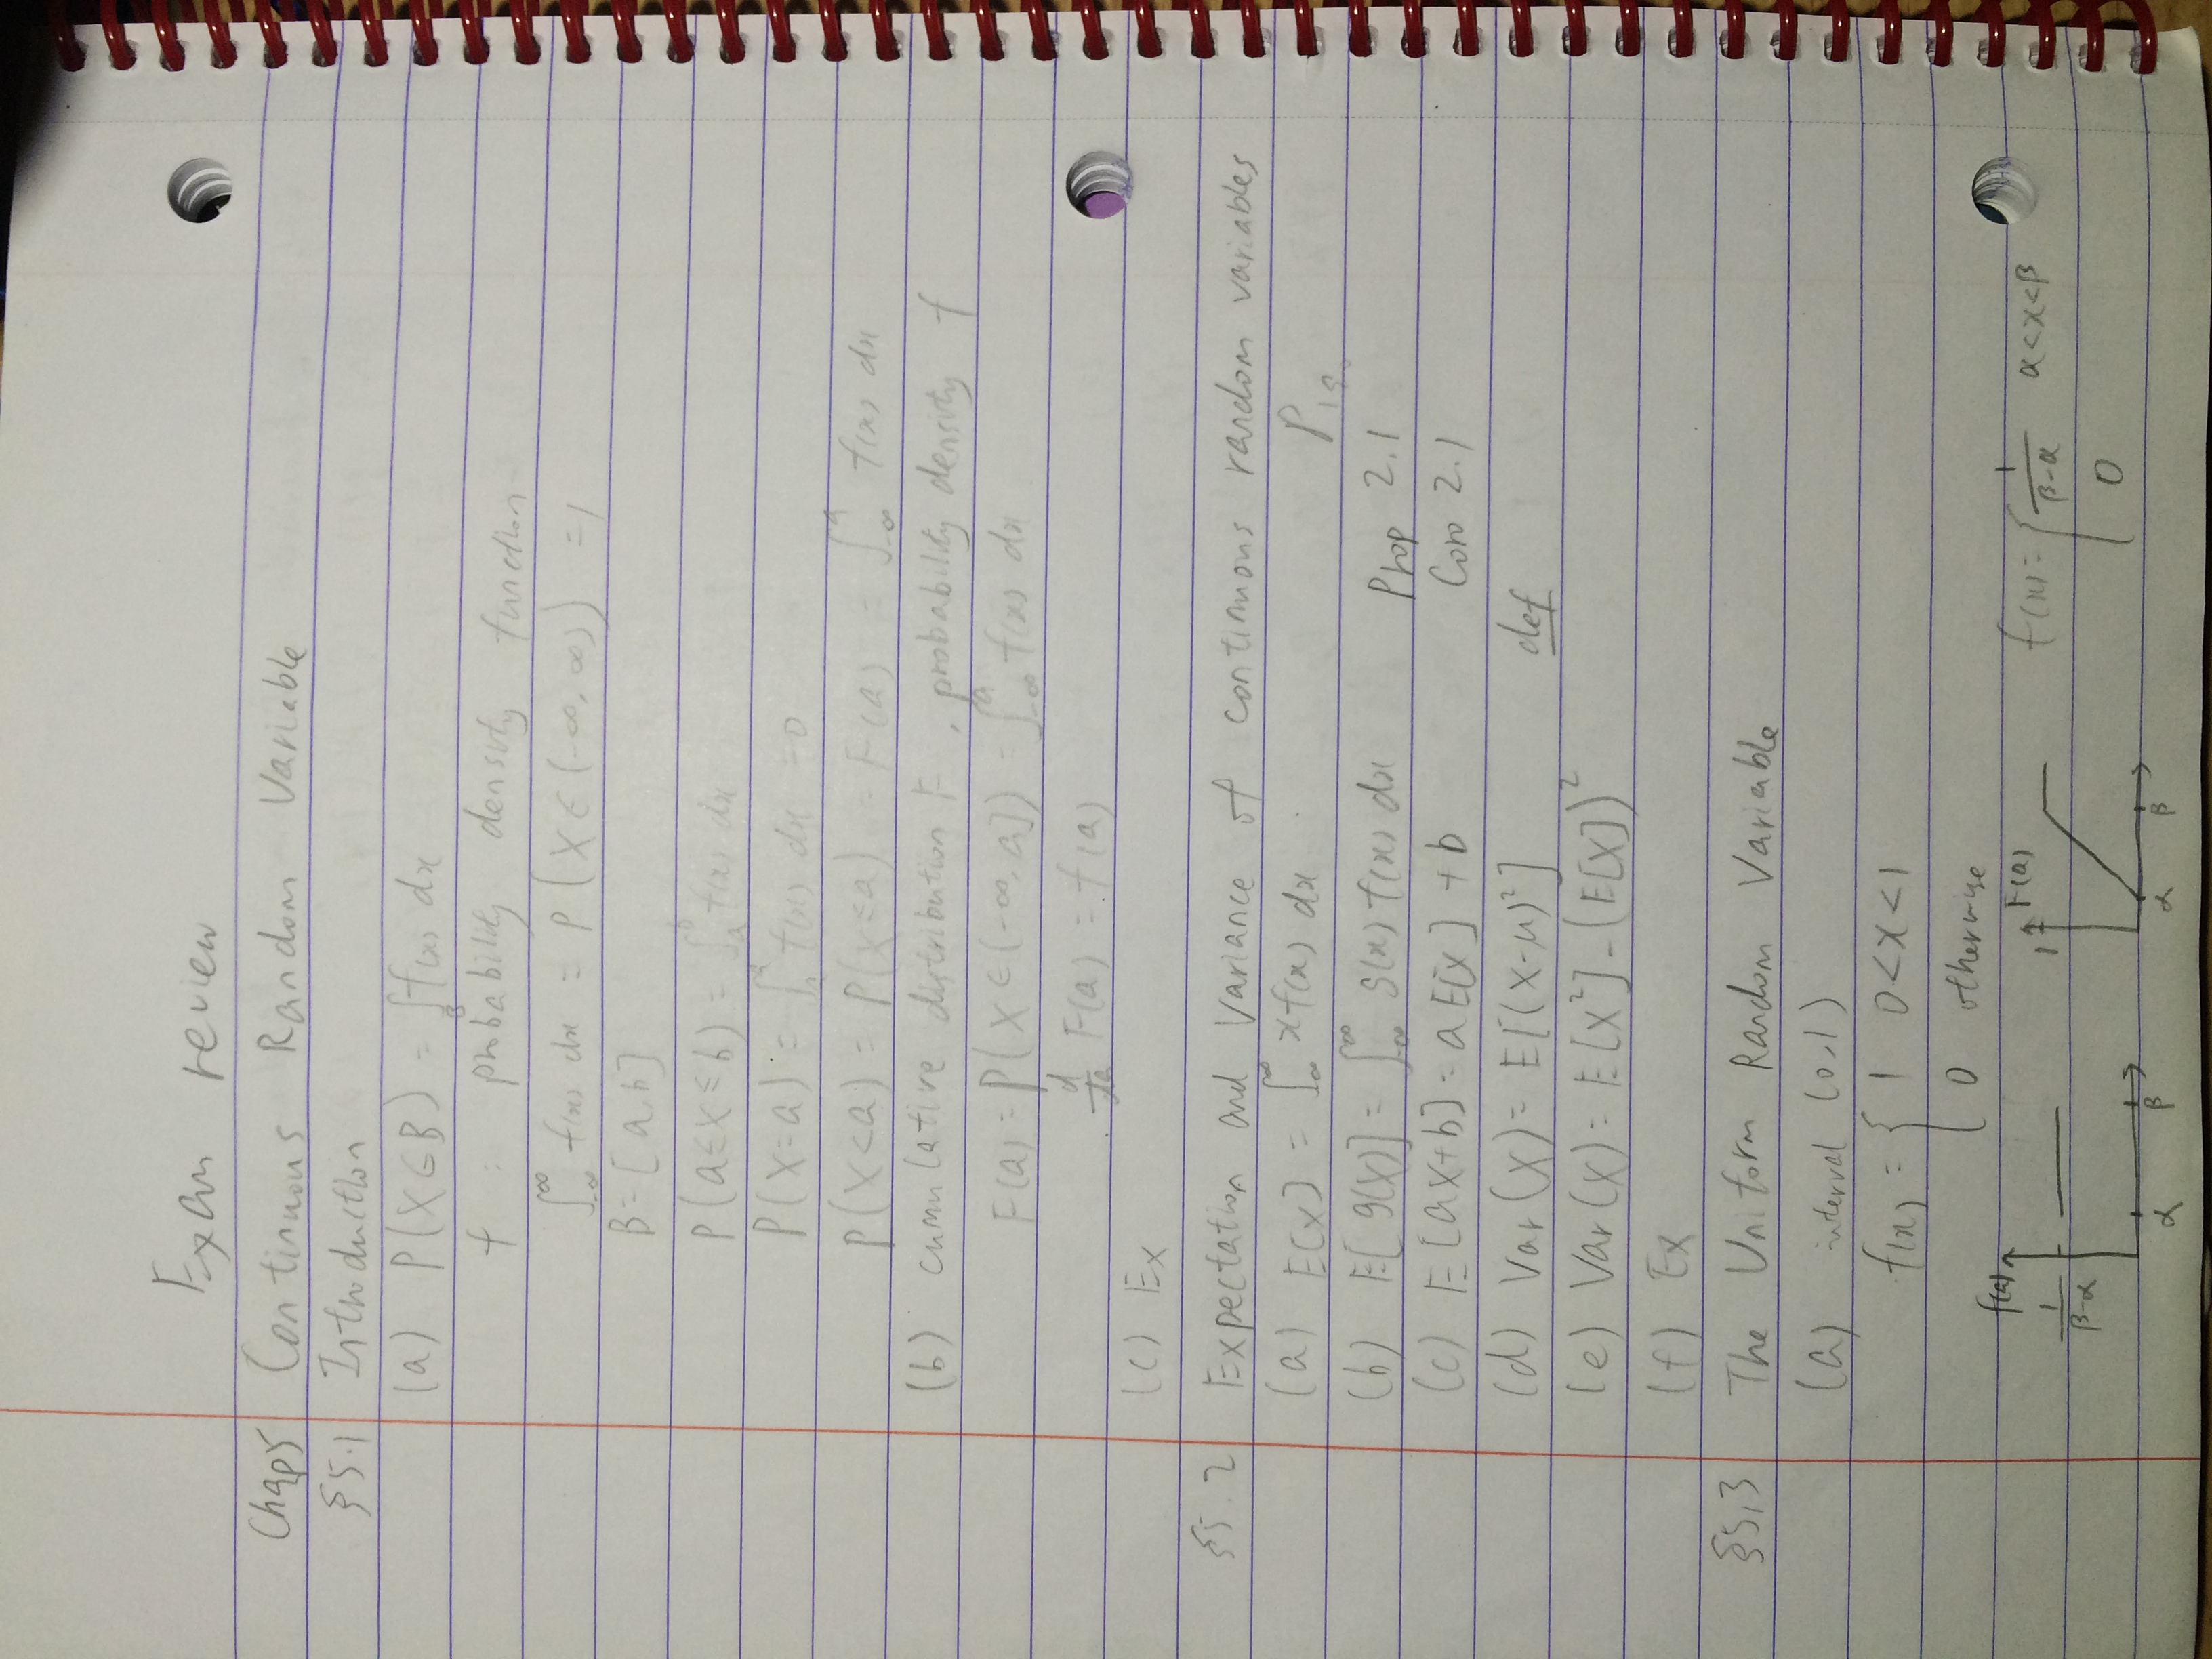 Exam review
Chap5 Continuous Random Variable
§5.1 Introduction
(a) P(X∈B) = ∫_B f(x) dx
f : probability density function
∫_{-∞}^{∞} f(x) dx = P(X∈(-∞,∞)) = 1
B = [a,b]
P(a≤X≤b) = ∫_a^b f(x) dx
P(X=a) = ∫_a^a f(x) dx = 0
P(X<a) = P(X≤a) = F(a) = ∫_{-∞}^a f(x) dx
(b) cumulative distribution F, probability density f
F(a) = P(X∈(-∞,a]) = ∫_{-∞}^a f(x) dx
d/da F(a) = f(a)
(c) Ex
§5.2 Expectation and Variance of continuous random variables
(a) E[X] = ∫_{-∞}^{∞} x f(x) dx
(b) E[g(X)] = ∫_{-∞}^{∞} g(x) f(x) dx Prop 2.1
(c) E[aX+b] = aE[X] + b Coro 2.1
(d) Var(X) = E[(X-μ)²] def
(e) Var(X) = E[X²] - (E[X])²
(f) Ex
§5.3 The Uniform Random Variable
(a) interval (0,1)
f(x) = { 1 0<x<1
0 otherwise
f(a) 1/(β-α) α β
1 F(a) α β
f(x) = { 1/(β-α) α<x<β
0